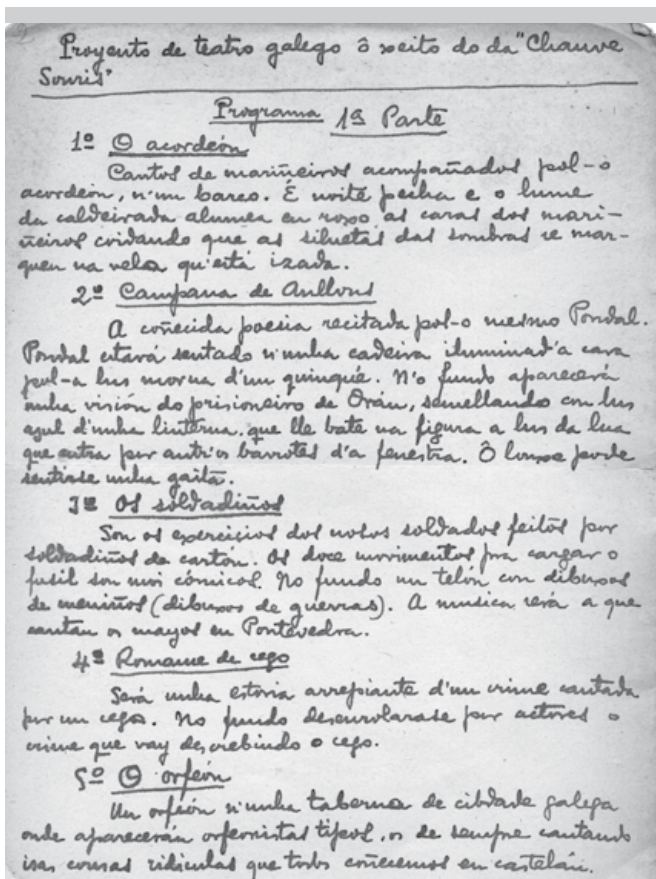 Proyento de teatro galego ô xeito do da "Chauve
Souris"
Programa 1ª Parte
1º O acordeón
Cantos de mariñeiros acompañados pol-o
acordeón, n'un barco. É noite pecha e o lume
da caldeirada alumea en roxo as caras dos mari-
ñeiros coidando que as siluetas das sombras se mar-
quen na vela qu'está izada.
2º Campana de Anllons
A coñecida poesia recitada pol-o mesmo Pondal.
Pondal estará sentado n'unha cadeira iluminad'a cara
pol-a lus morna d'un quinqué. N'o fundo aparecerá
unha visión do prisioneiro de Orán, semellando con lus
azul d'unha linterna, que lle bate na figura a lus da lua
que entra por antr'os barrotes d'a fenestra. Ô lonxe pode
sentirse unha gaita.
3º Os soldadiños
Son os exercicios dos nosos soldados feitos por
soldadiños de cartón. Os doce movimentos pra cargar o
fusil son moi cómicos. No fundo un telón con dibuxos
de meniños (dibuxos de guerras). A musica será a que
cantan os mayos en Pontevedra.
4º Romance de cego
Será unha estoria arrepiante d'un crime cantada
por un cego. No fundo desenrolarase por actores o
crime que vay descrebindo o cego.
5º O orfeón
Un orfeón n'unha taberna de cibdade galega
onde aparecerán orfeonistas tipos, os de sempre cantando
isas cousas ridiculas que todos coñecemos en castelán.